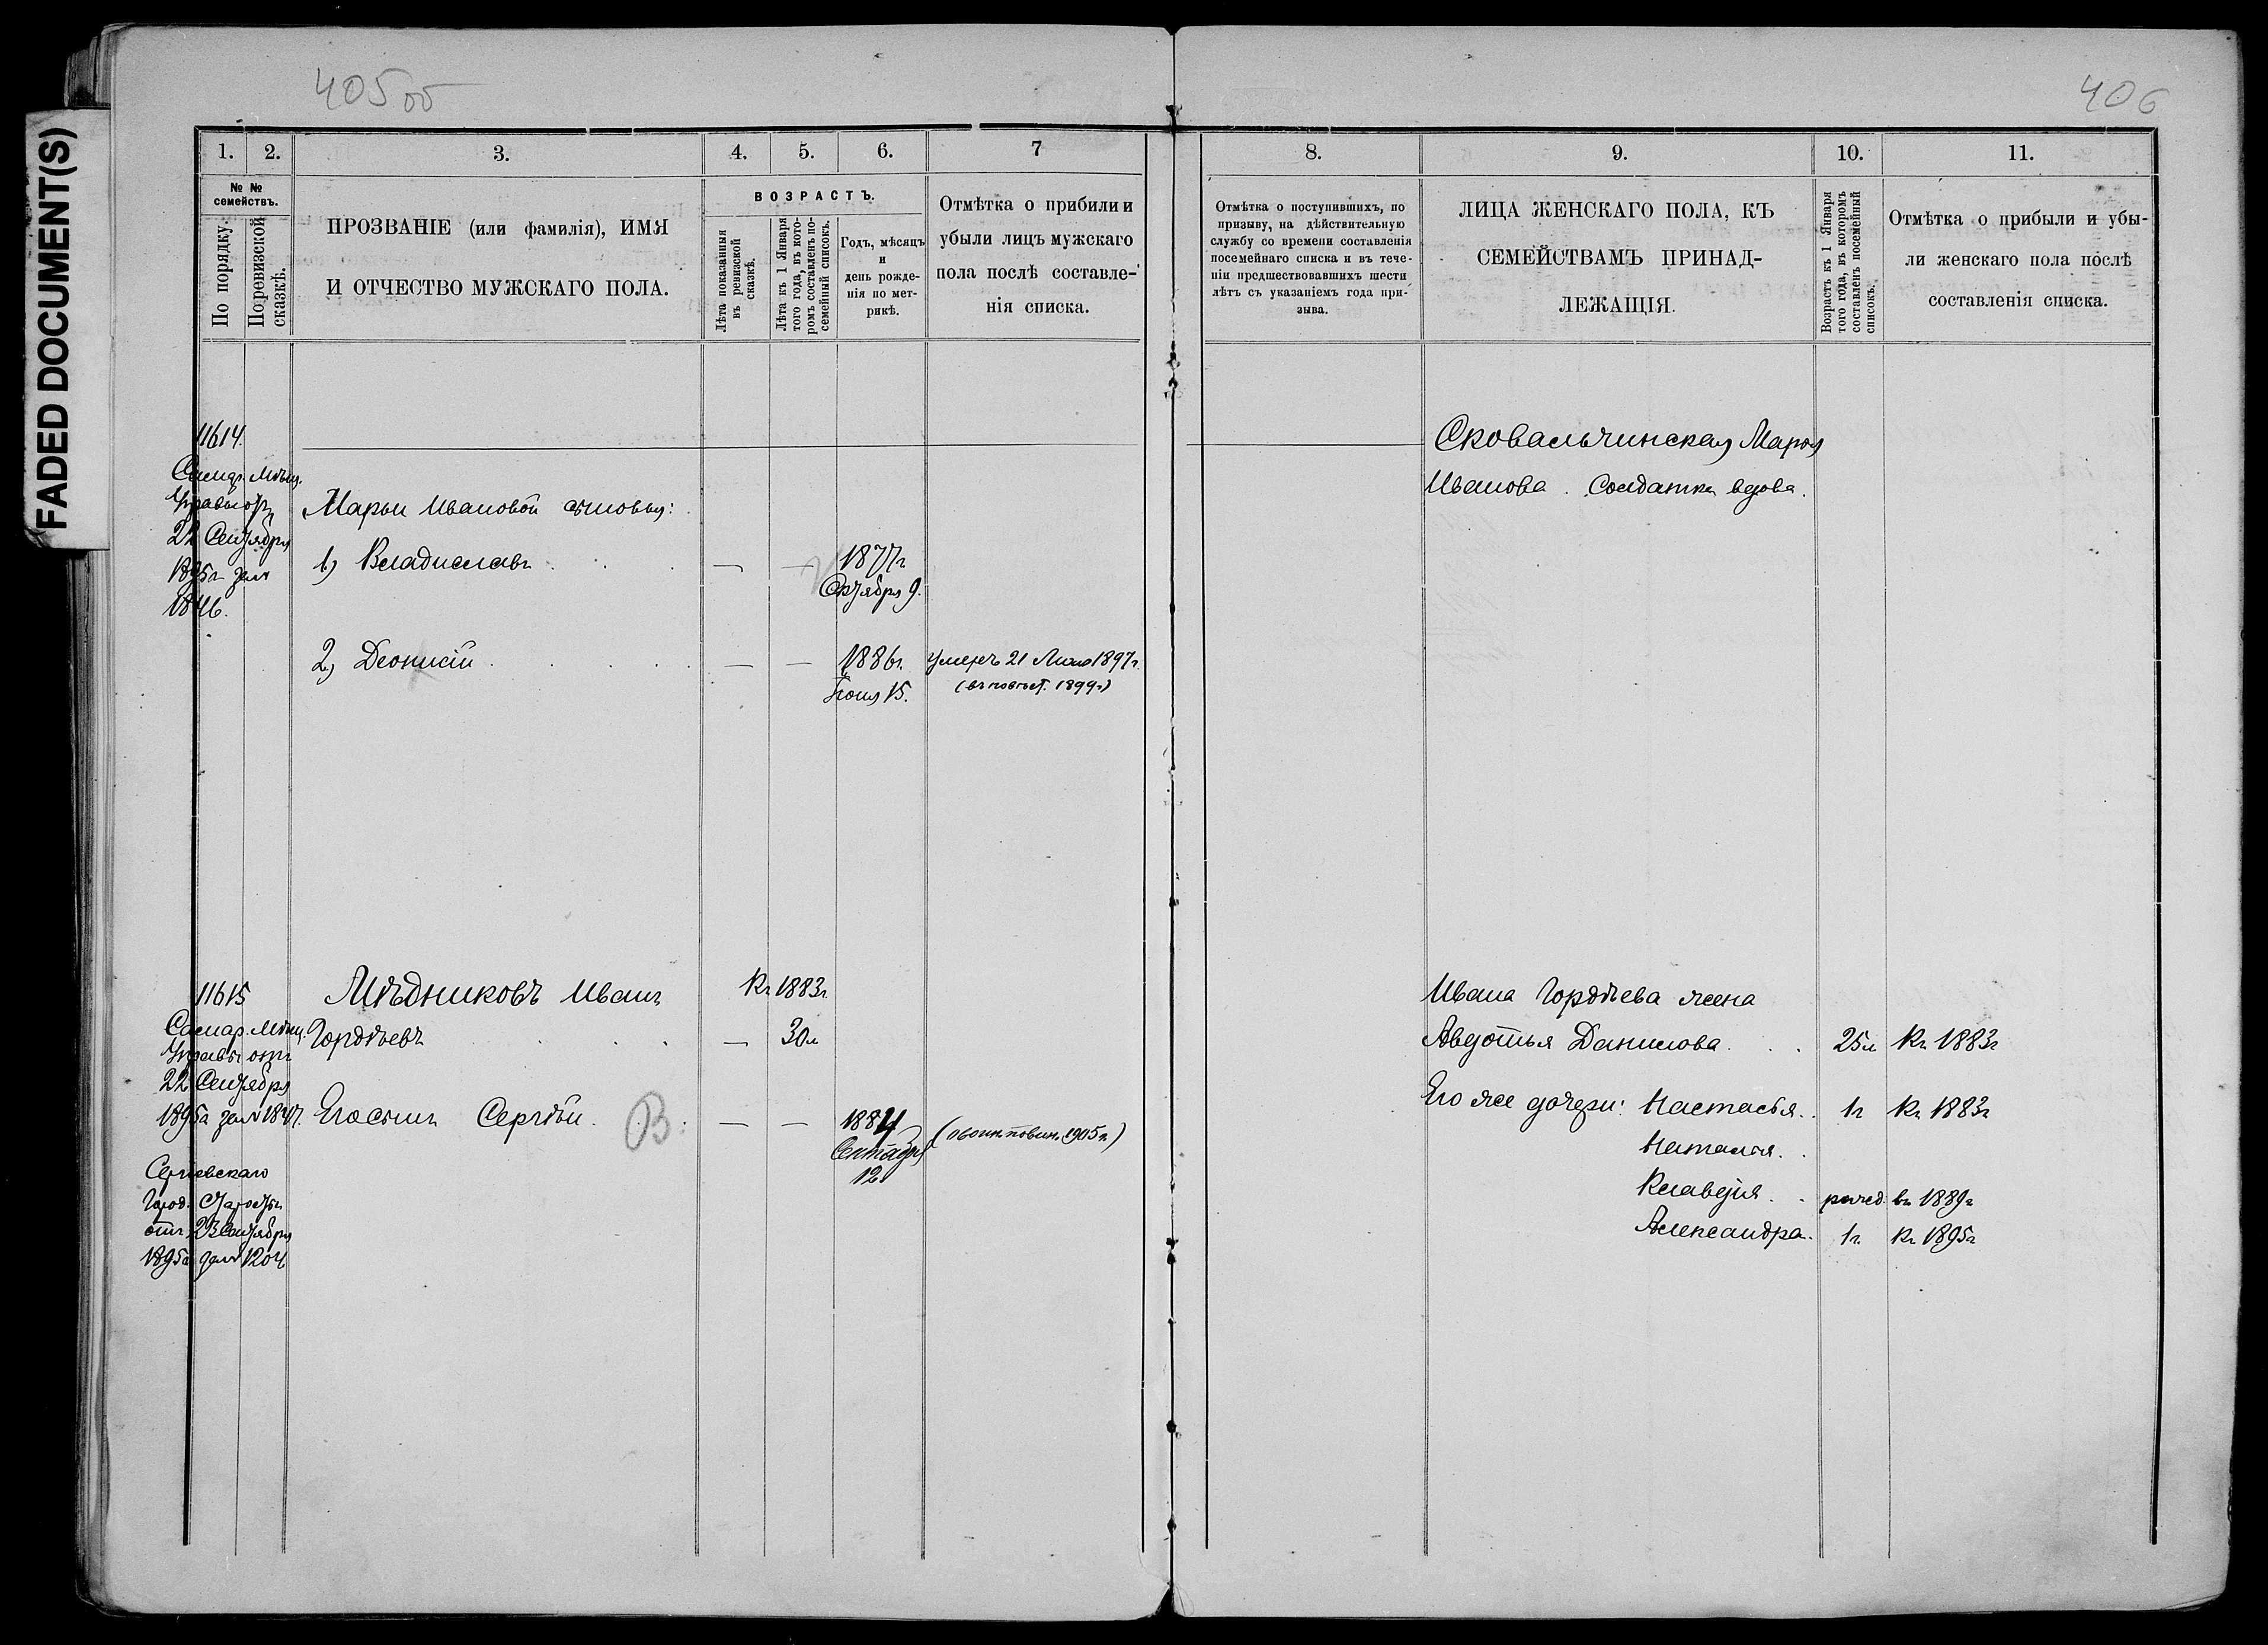 FADED DOCUMENT(S)
405 об
406
1. 2. 3. 4. 5. 6. 7
№ № семействъ.
По порядку.
По ревизской сказкѣ.
ПРОЗВАНІЕ (или фамилія), ИМЯ
И ОТЧЕСТВО МУЖСКАГО ПОЛА.
ВОЗРАСТЪ.
Лѣта показанныя
въ ревизской
сказкѣ.
Лѣта къ 1 Января
того года, въ кото-
ромъ составленъ по-
семейный списокъ.
Годъ, мѣсяцъ
и
день рожде-
нія по мет-
рикѣ.
Отмѣтка о прибыли и
убыли лицъ мужскаго
пола послѣ составле-
нія списка.
8. 9. 10. 11.
Отмѣтка о поступившихъ, по
призыву, на дѣйствительную
службу со времени составленія
посемейнаго списка и въ тече-
ніи предшествовавшихъ шести
лѣтъ съ указаніемъ года при-
зыва.
ЛИЦА ЖЕНСКАГО ПОЛА, КЪ
СЕМЕЙСТВАМЪ ПРИНАД-
ЛЕЖАЩІЯ.
Возрастъ къ 1 Января
того года, въ которомъ
составленъ посемейный
списокъ.
Отмѣтка о прибыли и убы-
ли женскаго пола послѣ
составленія списка.
11614.
Самар. Мѣщ.
Управы отъ
22 Сентября
1895г. за №
1846.
Марьи Ивановой сыновья:
1) Владиславъ — — 1877г
Октября 9.
2) Деонисій — — 1886г. Умеръ 21 Июля 1897г.
Іюня 15.
Сковальчинская Марья
Иванова. Солдатка вдова.
11615
Самар. Мѣщ.
Управы отъ
22 Сентября
1895г за № 1847.
Сергіевскаго
Город. Старосты
отъ 23 Сентября
1895г за № 1204
Мѣдниковъ Иванъ Къ 1883г
Гордѣевъ — 30л
Его сынъ Сергѣй В — — 1884 (о воин. повин. 1905г.)
Сентября
12
Ивана Гордѣева жена
Авдотья Данилова 25л Къ 1883г
Его же дочери: Настасья 1г Къ 1883г
Наталья
Клавдія рожд. въ 1889г
Александра 1г. Къ 1895г